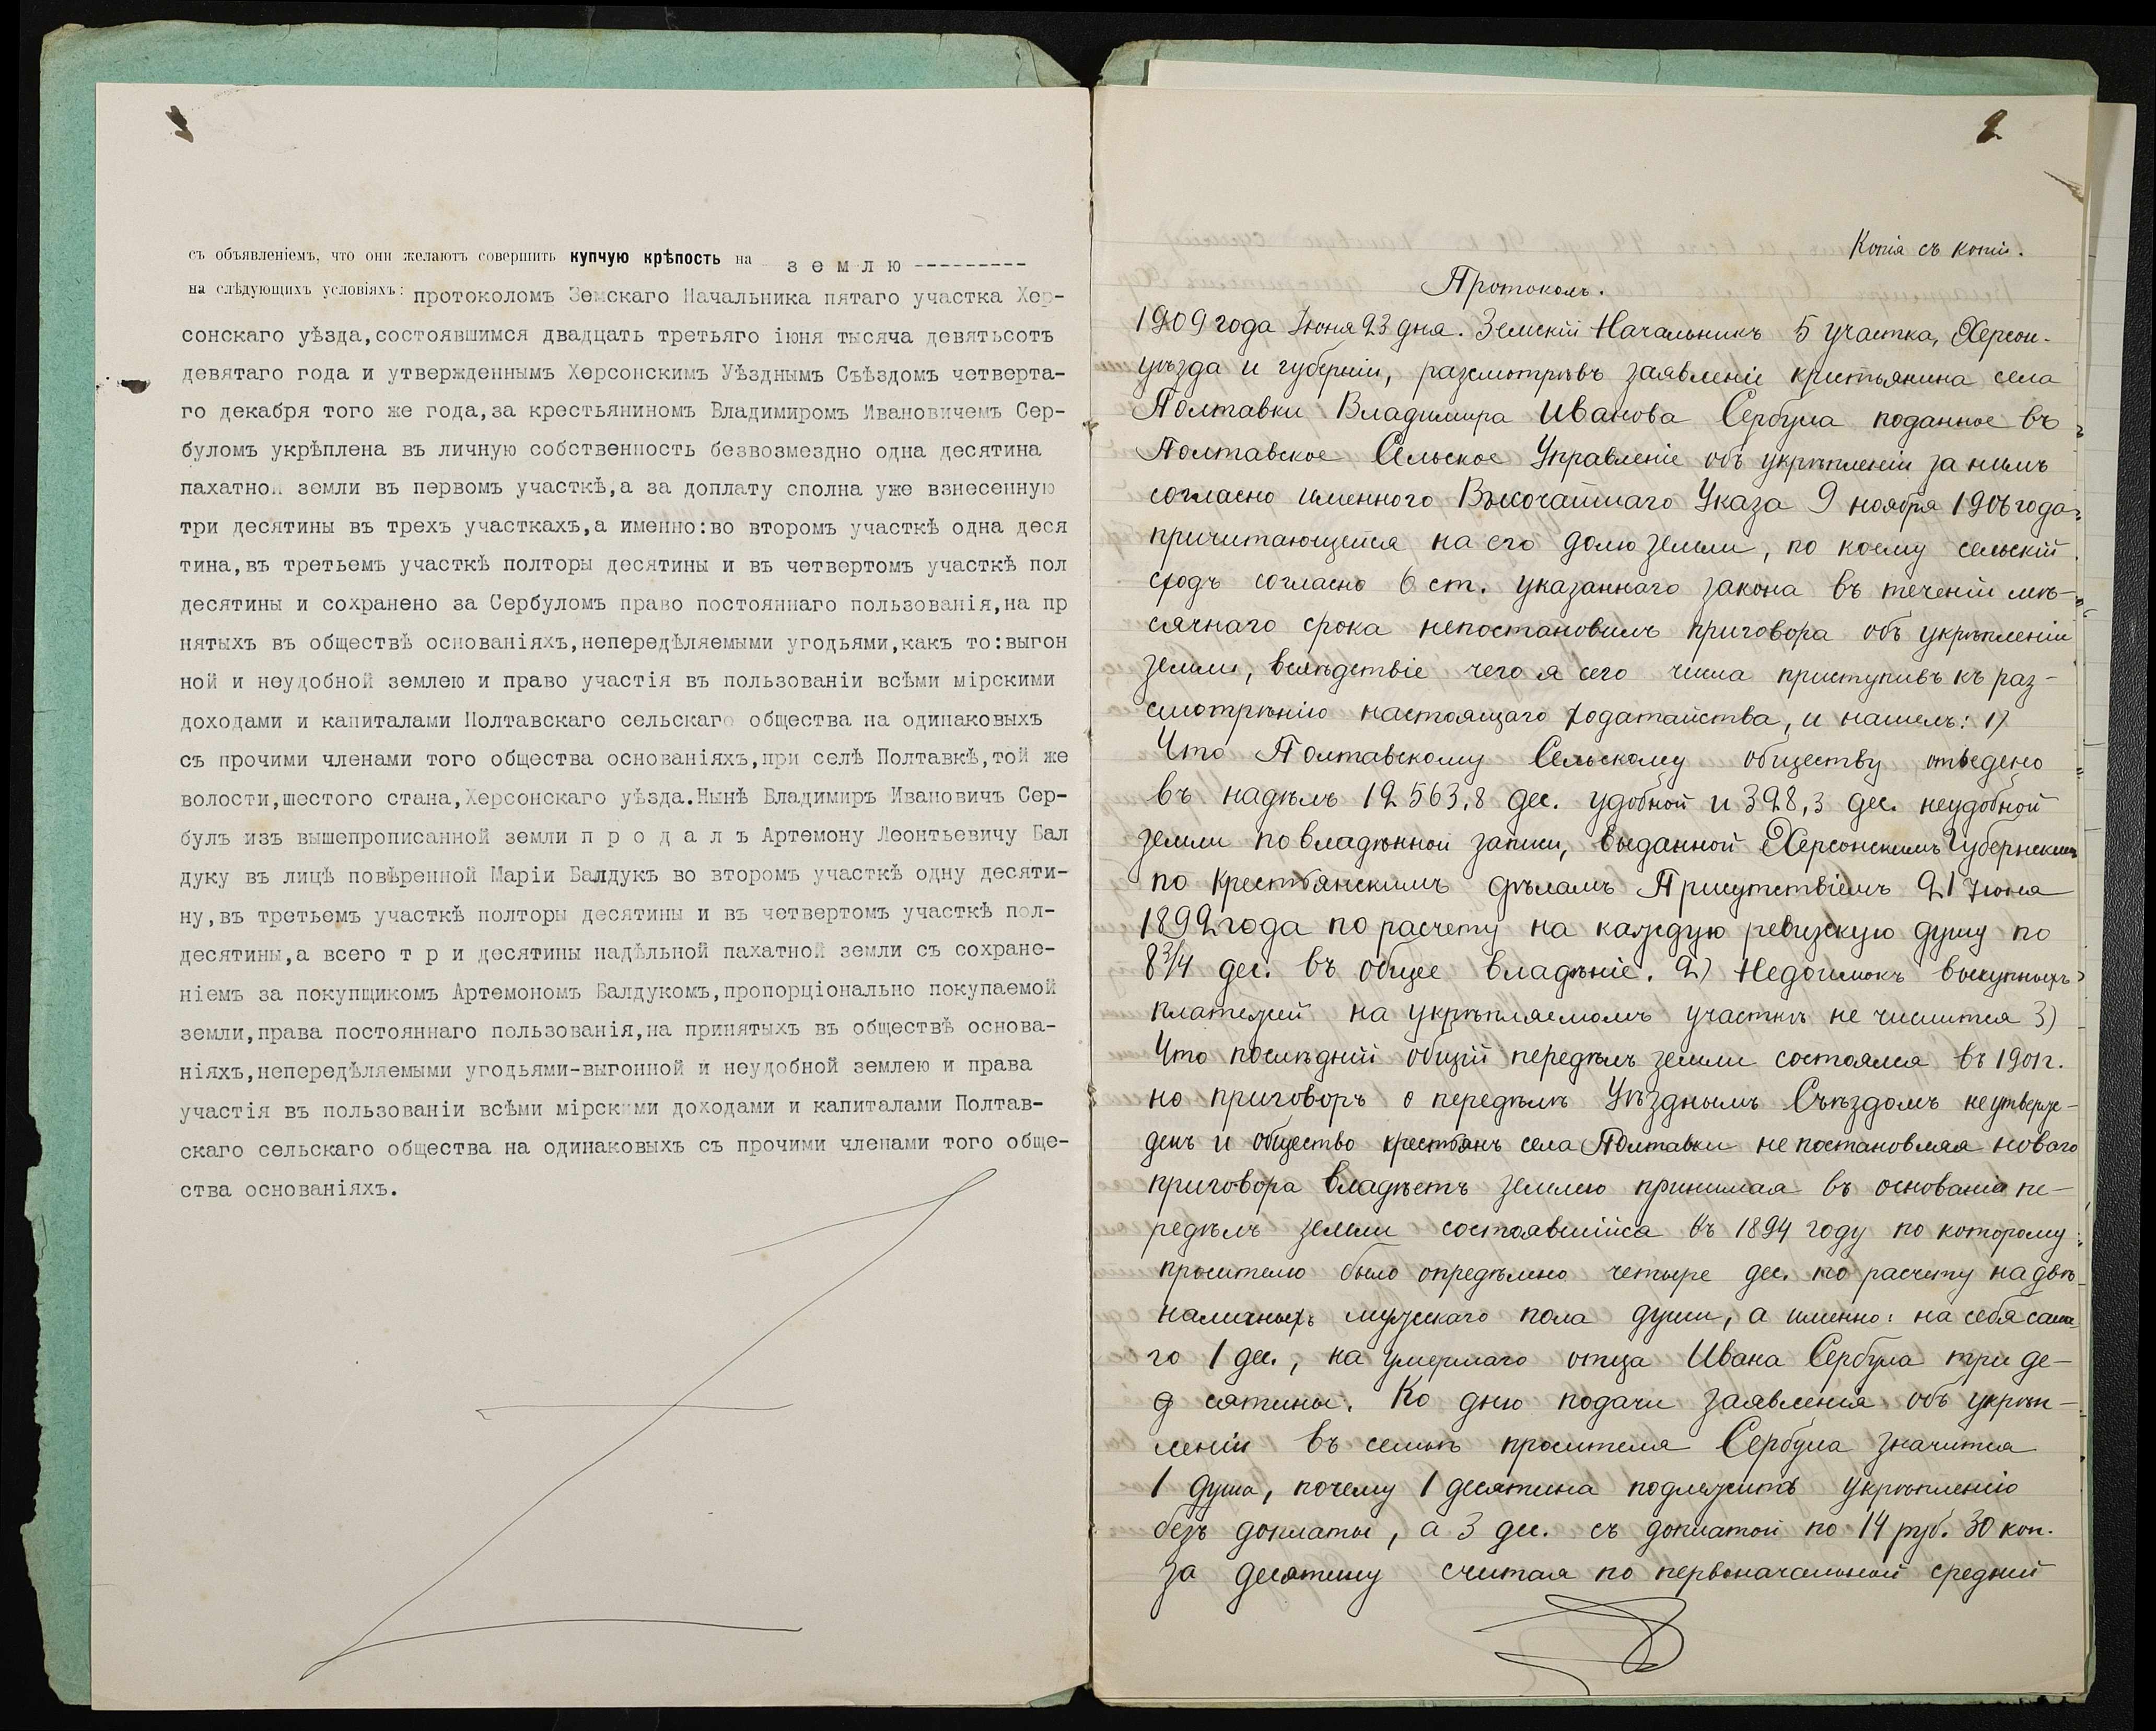 съ объявленіемъ, что они желаютъ совершить купчую крѣпость на землю ---------
на слѣдующихъ условіяхъ: протоколомъ Земскаго Начальника пятаго участка Хер-
сонскаго уѣзда,состоявшимся двадцать третьяго іюня тысяча девятьсотъ
девятаго года и утвержденнымъ Херсонскимъ Уѣзднымъ Съѣздомъ четверта-
го декабря того же года,за крестьяниномъ Владимиромъ Ивановичемъ Сер-
буломъ укрѣплена въ личную собственность безвозмездно одна десятина
пахатной земли въ первомъ участкѣ,а за доплату сполна уже взнесенную
три десятины въ трехъ участкахъ,а именно:во второмъ участкѣ одна деся
тина,въ третьемъ участкѣ полторы десятины и въ четвертомъ участкѣ пол
десятины и сохранено за Сербуломъ право постояннаго пользованія,на пр
нятыхъ въ обществѣ основаніяхъ,непередѣляемыми угодьями,какъ то:выгон
ной и неудобной землею и право участія въ пользованіи всѣми мірскими
доходами и капиталами Полтавскаго сельскаго общества на одинаковыхъ
съ прочими членами того общества основаніяхъ,при селѣ Полтавкѣ,той же
волости,шестого стана,Херсонскаго уѣзда.Нынѣ Владимиръ Ивановичъ Сер-
булъ изъ вышепрописанной земли п р о д а л ъ Артемону Леонтьевичу Бал
дуку въ лицѣ повѣренной Маріи Балдукъ во второмъ участкѣ одну десяти-
ну,въ третьемъ участкѣ полторы десятины и въ четвертомъ участкѣ пол-
десятины,а всего т р и десятины надѣльной пахатной земли съ сохране-
ніемъ за покупщикомъ Артемономъ Балдукомъ,пропорціонально покупаемой
земли,права постояннаго пользованія,на принятыхъ въ обществѣ основа-
ніяхъ,непередѣляемыми угодьями-выгонной и неудобной землею и права
участія въ пользованіи всѣми мірскими доходами и капиталами Полтав-
скаго сельскаго общества на одинаковыхъ съ прочими членами того обще-
ства основаніяхъ.
2
Копія съ копіи.
Протоколъ.
1909 года Іюня 23 дня. Земскій Начальникъ 5 участка, Херсон.
уѣзда и губерніи, разсмотрѣвъ заявленіе кристьянина села
Полтавки Владимира Иванова Сербула поданное въ
Полтавское Сельское Управленіе объ укрѣпленіи за нимъ
согласно именного Высочайшаго Указа 9 ноября 1906 года
причитающейся на его долю земли, по коему сельскій
сходъ согласно 6 ст. указаннаго закона въ теченіи мѣ-
сячнаго срока непостановилъ приговора объ укрѣпленіи
земли, вслѣдствіе чего я сего числа приступивъ къ раз-
смотрѣнію настоящаго ходатайства, и нашелъ: 1)
Что Полтавскому Сельскому обществу отведено
въ надѣлъ 12563,8 дес. удобной и 328,3 дес. неудобной
земли по владѣнной записи, выданной Херсонскимъ Губернскимъ
по крестьянскимъ дѣламъ Присутствіемъ 21 Іюня
1892 года по расчету на каждую ревизскую душу по
8 3/4 дес. въ общее владѣніе. 2) Недоимокъ выкупныхъ
платежей на укрѣпляемомъ участкѣ не числится 3)
Что послѣдній общій передѣлъ земли состоялся въ 1901 г.
но приговоръ о передѣлѣ Уѣзднымъ Съѣздомъ неутверж-
денъ и общество крестьянъ села Полтавки не постановляя новаго
приговора владѣетъ землею принимая въ основаніе пе-
редѣлъ земли состоявшійся въ 1894 году по которому
просителю было опредѣлено четыре дес. по расчету на двѣ
наличныхъ мужскаго пола души, а именно: на себя само-
го 1 дес., на умершаго отца Ивана Сербула три де-
сятины. Ко дню подачи заявленія объ укрѣп-
леніи въ семьѣ просителя Сербула значится
1 душа, почему 1 десятина подлежитъ укрѣпленію
безъ доплаты, а 3 дес. съ доплатой по 14 руб. 30 коп.
за десятину считая по первоначальной средний